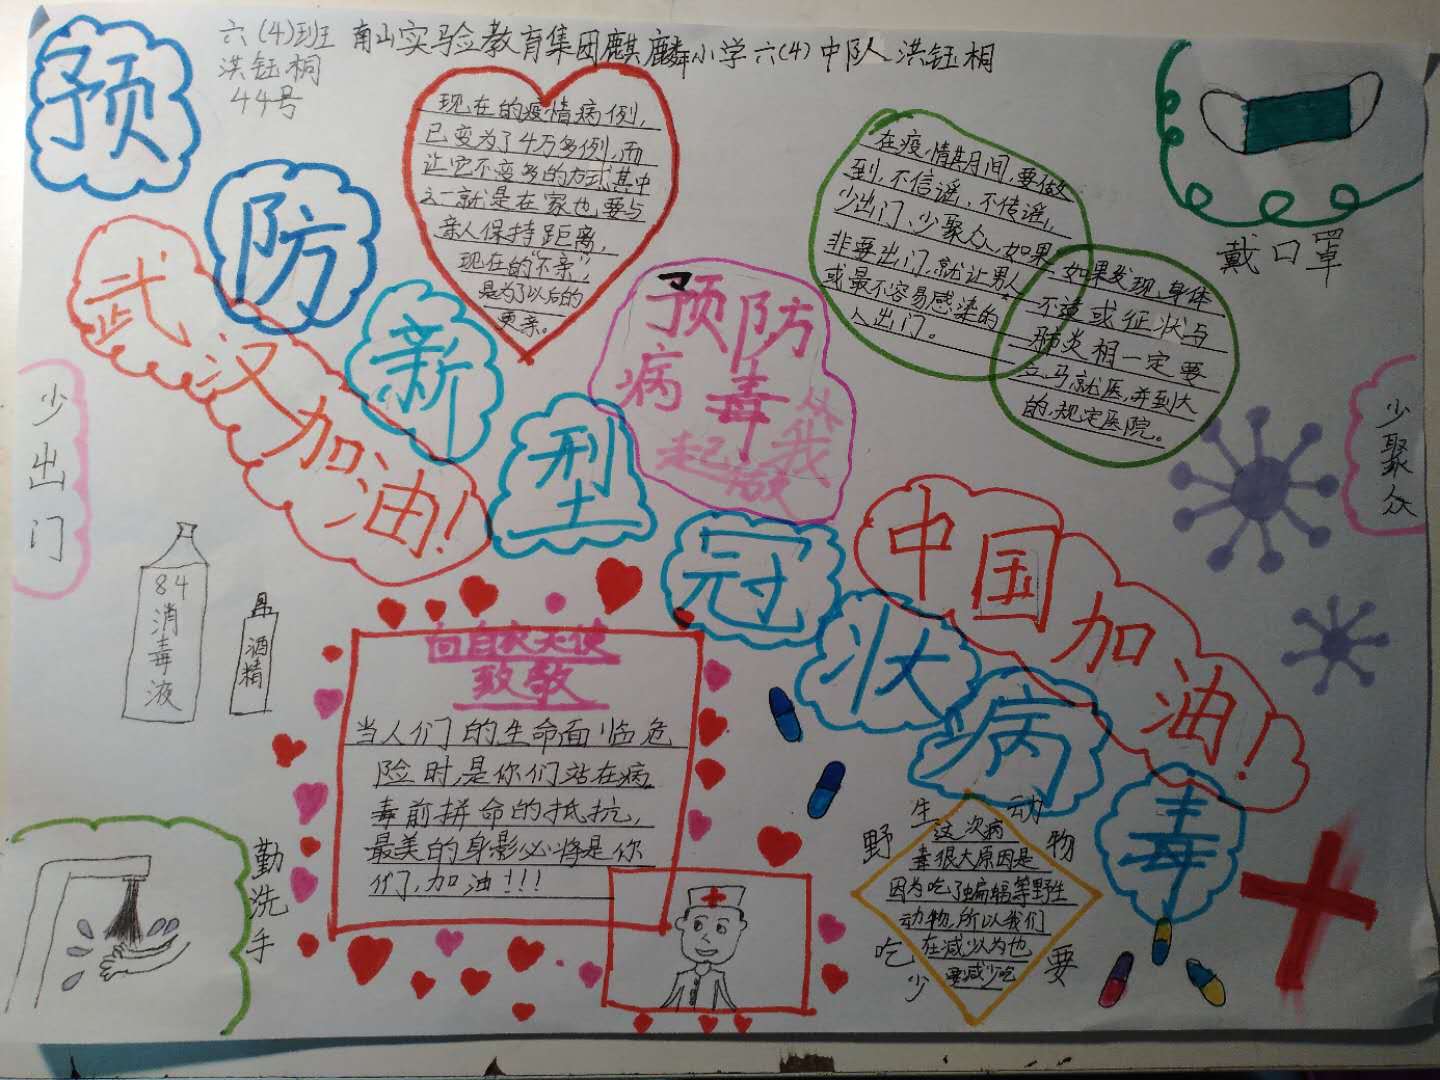 六(4)班 南山实验教育集团麒麟小学六(4)中队 洪钰桐
洪钰桐
44号
预
防
新
型
冠
状
病
毒
武汉加油!
中国加油!
现在的疫情病例,
已变为了4万多例,而
让它不变多的方式其中
之一就是在家也要与
亲人保持距离,
现在的“不亲”,
是为了以后的
更亲。
预防
病毒从
起做我
在疫情期间,要做
到,不信谣、不传谣,
少出门、少聚众、如果
非要出门,就让男人
或最不容易感染的
人出门。
如果发现身体
不适或征状与
肺炎相一定要
立马就医,并到大
的规定医院。
戴口罩
少出门
少聚众
84消毒液
酒精
勤洗手
向白衣天使
致敬
当人们的生命面临危
险时,是你们站在病
毒前拼命的抵抗,
最美的身影必将是你
们,加油!!!
野生动物
要少吃
这次病
毒很大原因是
因为吃了蝙蝠等野生
动物,所以我们
在减以为也
要减少吃